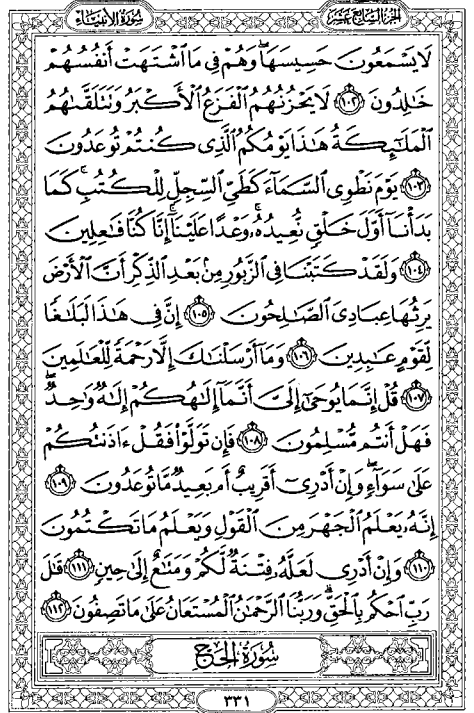 سُورَةُ الأَنبِيَاءِ
الجُزْءُ السَّابِعَ عَشَرَ
لَا يَسْمَعُونَ حَسِيسَهَاۖ وَهُمْ فِي مَا ٱشْتَهَتْ أَنفُسُهُمْ
خَٰلِدُونَ ١٠٢ لَا يَحْزُنُهُمُ ٱلْفَزَعُ ٱلْأَكْبَرُ وَتَتَلَقَّىٰهُمُ
ٱلْمَلَٰٓئِكَةُ هَٰذَا يَوْمُكُمُ ٱلَّذِي كُنتُمْ تُوعَدُونَ
١٠٣ يَوْمَ نَطْوِي ٱلسَّمَآءَ كَطَيِّ ٱلسِّجِلِّ لِلْكُتُبِۚ كَمَا
بَدَأْنَآ أَوَّلَ خَلْقٍ نُّعِيدُهُۥۚ وَعْدًا عَلَيْنَآۚ إِنَّا كُنَّا فَٰعِلِينَ
١٠٤ وَلَقَدْ كَتَبْنَا فِي ٱلزَّبُورِ مِنۢ بَعْدِ ٱلذِّكْرِ أَنَّ ٱلْأَرْضَ
يَرِثُهَا عِبَادِيَ ٱلصَّٰلِحُونَ ١٠٥ إِنَّ فِي هَٰذَا لَبَلَٰغًا
لِّقَوْمٍ عَٰبِدِينَ ١٠٦ وَمَآ أَرْسَلْنَٰكَ إِلَّا رَحْمَةً لِّلْعَٰلَمِينَ
١٠٧ قُلْ إِنَّمَا يُوحَىٰٓ إِلَيَّ أَنَّمَآ إِلَٰهُكُمْ إِلَٰهٌ وَٰحِدٌۖ
فَهَلْ أَنتُم مُّسْلِمُونَ ١٠٨ فَإِن تَوَلَّوْا۟ فَقُلْ ءَاذَنتُكُمْ
عَلَىٰ سَوَآءٍۖ وَإِنْ أَدْرِيٓ أَقَرِيبٌ أَم بَعِيدٌ مَّا تُوعَدُونَ ١٠٩
إِنَّهُۥ يَعْلَمُ ٱلْجَهْرَ مِنَ ٱلْقَوْلِ وَيَعْلَمُ مَا تَكْتُمُونَ
١١٠ وَإِنْ أَدْرِي لَعَلَّهُۥ فِتْنَةٌ لَّكُمْ وَمَتَٰعٌ إِلَىٰ حِينٍ ١١١ قَٰلَ
رَبِّ ٱحْكُم بِٱلْحَقِّۗ وَرَبُّنَا ٱلرَّحْمَٰنُ ٱلْمُسْتَعَانُ عَلَىٰ مَا تَصِفُونَ ١١٢
سُورَةُ الحَجِّ
٣٣١